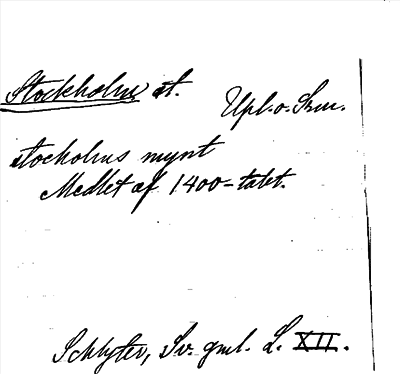 Stockholm st.
Upl. o. Srm.
stocholms mynt
Medlet af 1400-talet.
Schlyter, Sv. gml. L. XII.